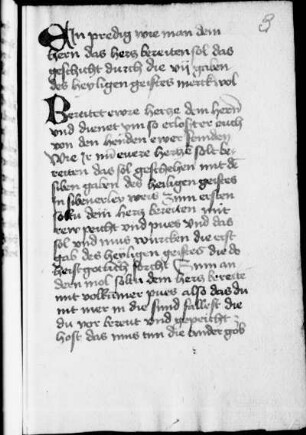 Ain predig wie man dem
hern das hers bereiten sol das
geschicht durch die vij gaben
des heyligen geistes merck wol
Bereitet ewre hertze dem hern
und dienet ym so erloset er euch
von den henden ewer feinden
Wie ir nu ewere hertze solt be
reiten das sol geschehen mit de
siben gaben des heiligen geistes
In sibenerley weis Zum ersten
soltu dein hertz bereiten mit
rew peicht und pues und das
sol und mus wurcken die erst
gab des heyligen geistes die do
heist gotlich forcht Zum an
dern mol soltu dein hers bereite
mit volkumer pues also das du
nit mer in die sund fallest die
du vor bereut und gepeicht
host das mus tun die ander gob